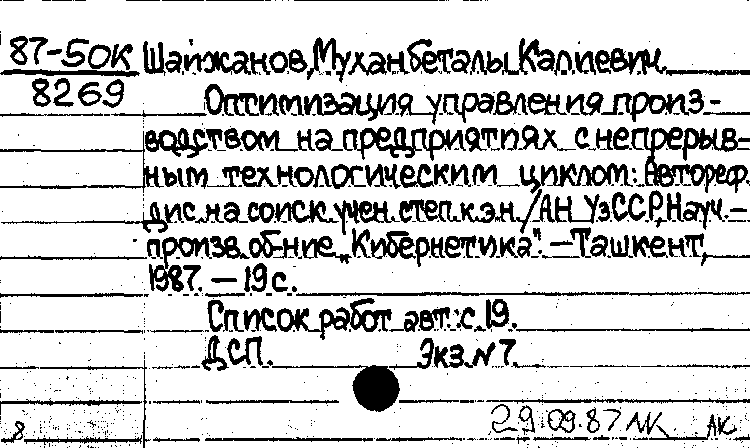 87-5ОК
8269
Шайжанов, Муханбеталы Калиевич.
Оптимизация управления произ-
водством на предприятиях с непрерыв-
ным технологическим циклом: Автореф.
дис. на соиск. учен. степ. к.э.н. / АН УзССР, Науч.-
произв. об-ние „Кибернетика". — Ташкент,
1987. — 19 с.
Список работ авт.: с. 19.
ДСП. Экз. № 7.
29.09.87 ЛК ЛК
8